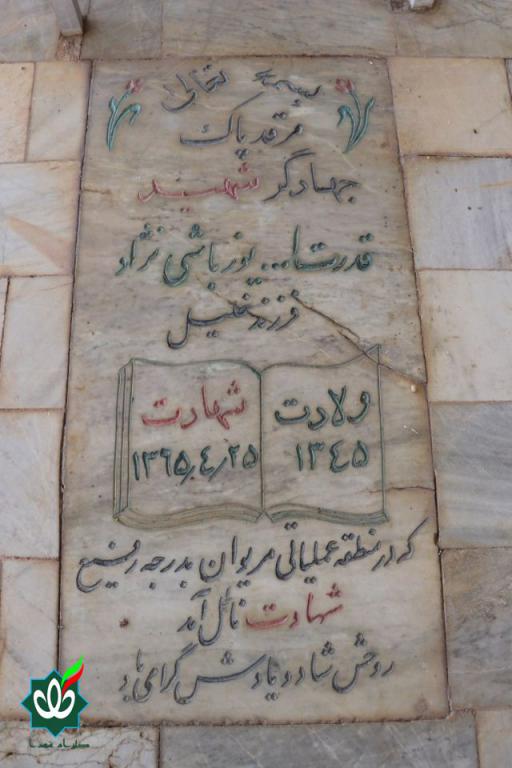 بسمه تعالی
مرقد پاک
جهادگر شهید
قدرت ا... یوزباشی نژاد
فرزند خلیل
ولادت
۱۳٤۵
شهادت
۱۳٦۵٫٤٫۲۵
که در منطقه عملیاتی مریوان بدرجه رفیع
شهادت نائل آمد
روحش شاد و یادش گرامی باد